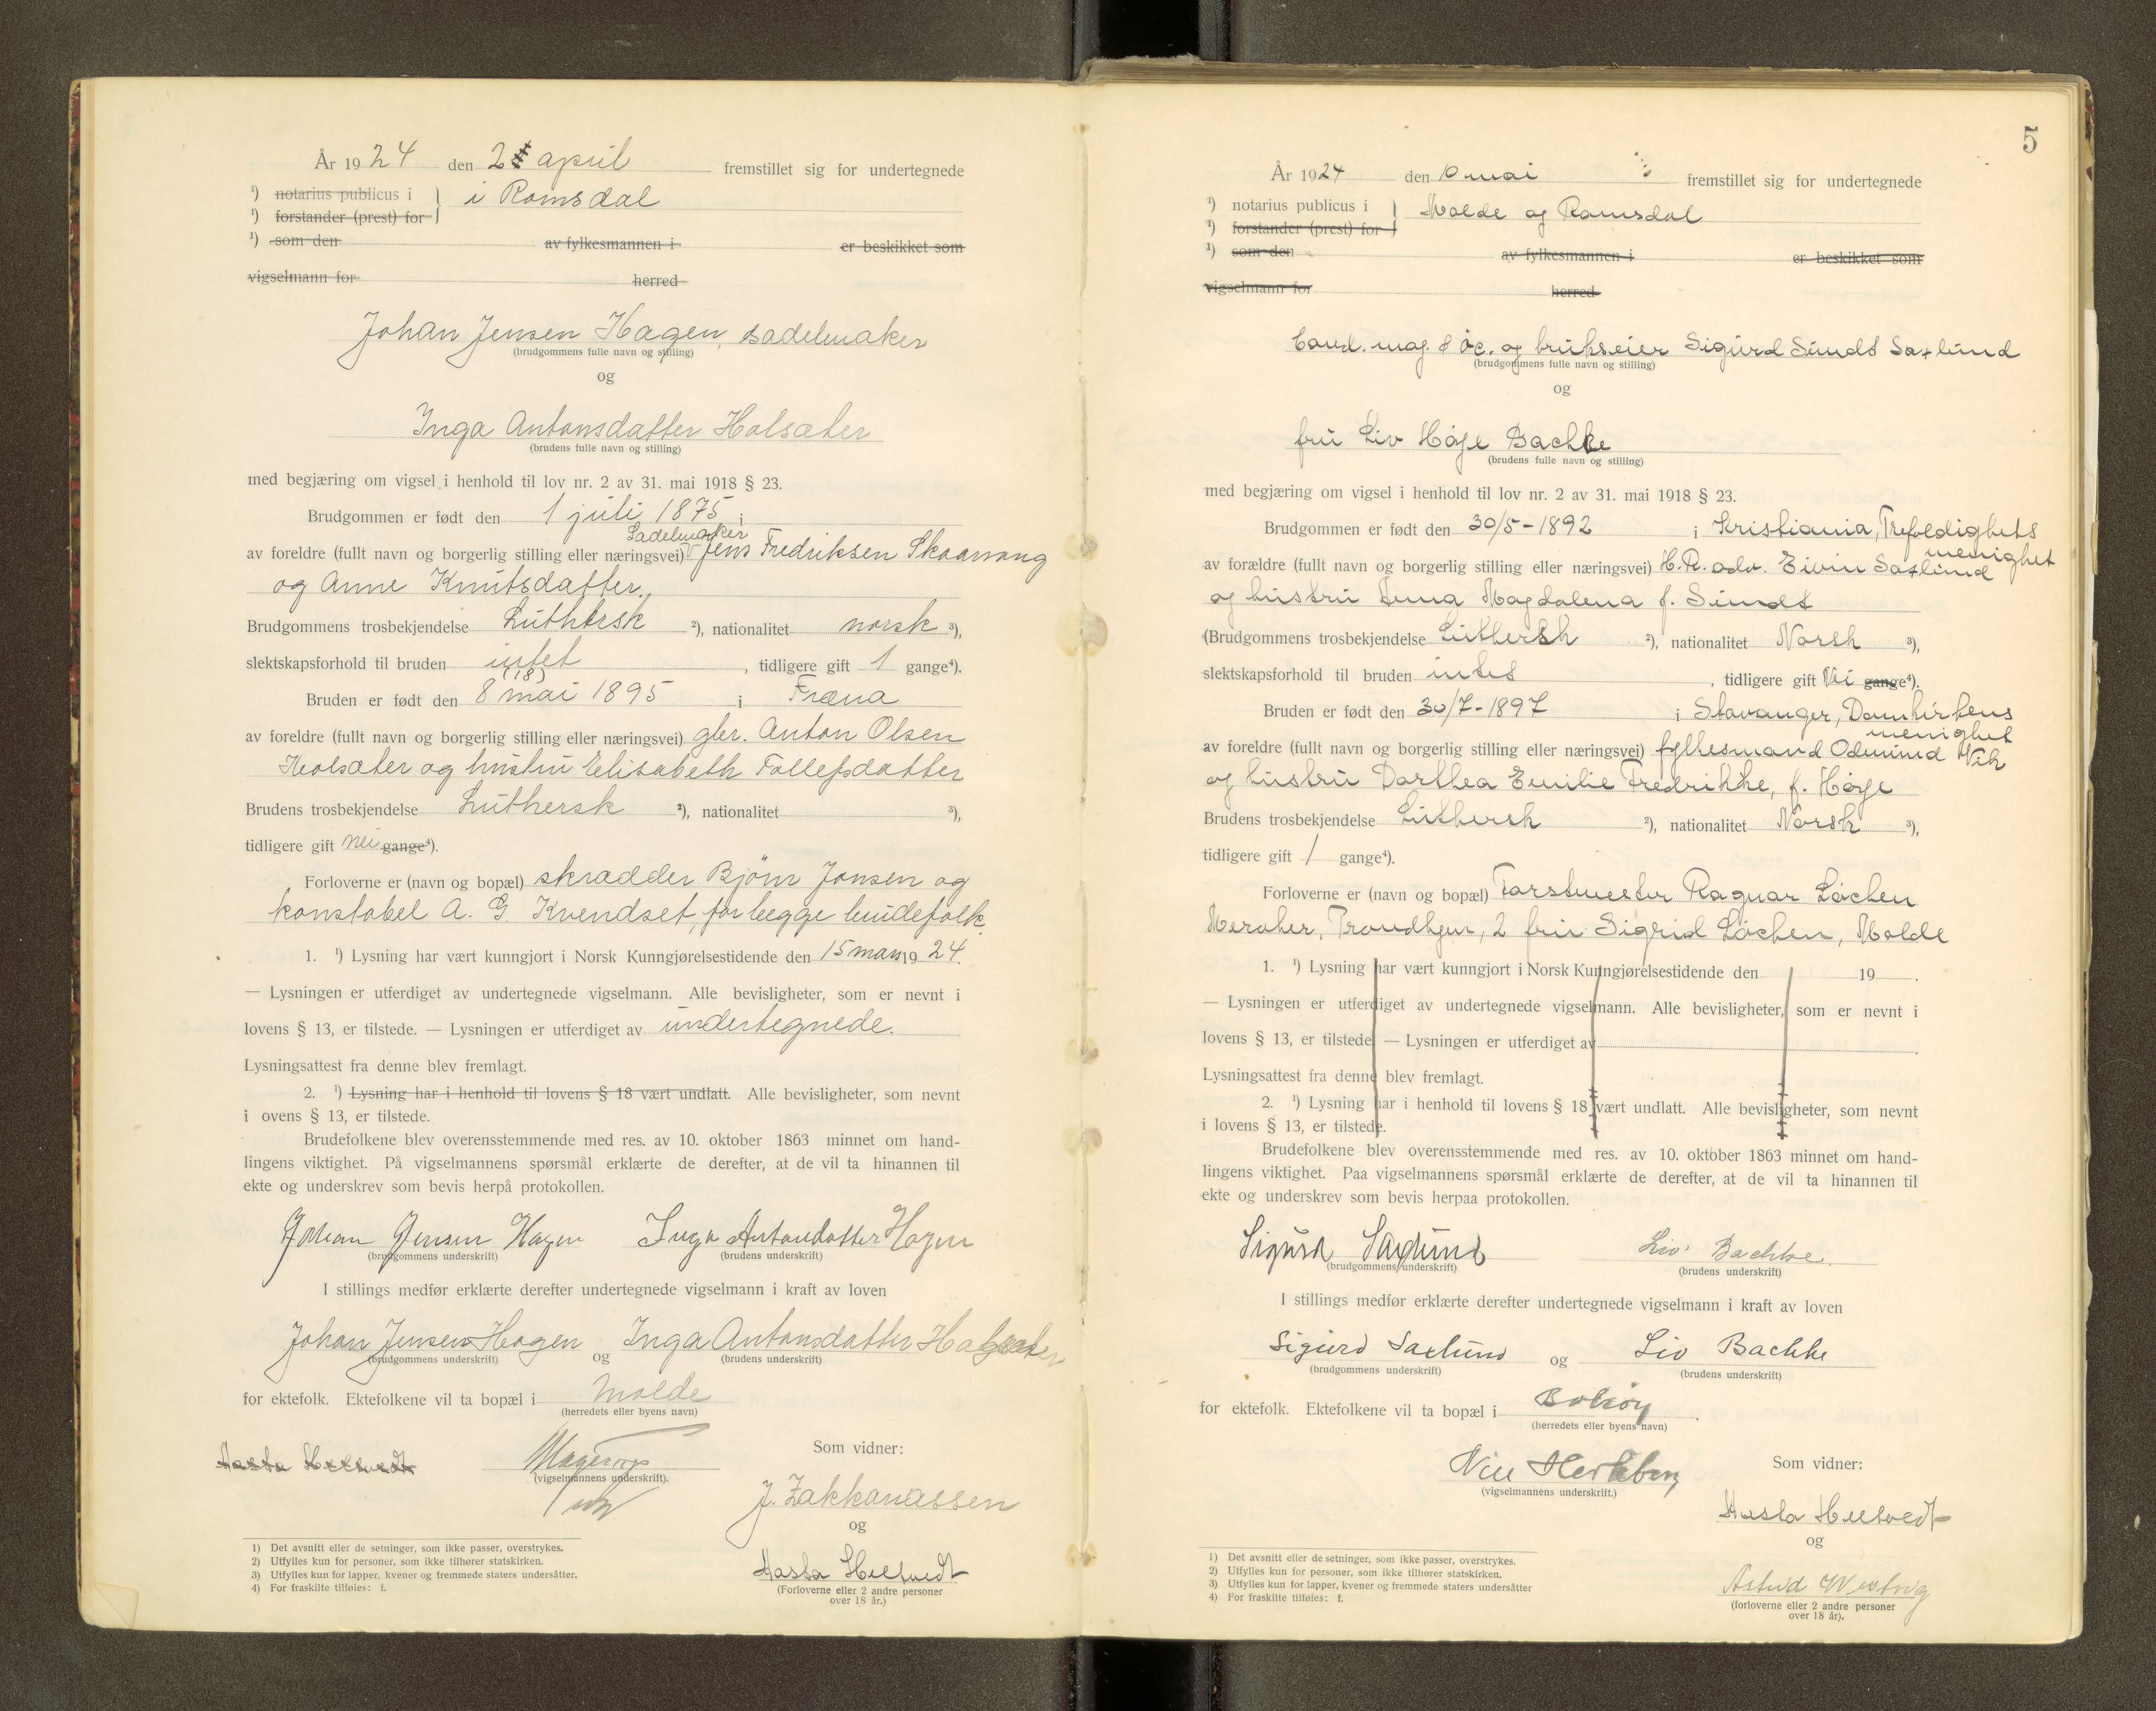 År 1924 den 2 april fremstillet sig for undertegnede
¹) notarius publicus i } i Romsdal
¹) forstander (prest) for
¹) som den av fylkesmannen i er beskikket som
vigselmann for herred
Johan Jensen Hagen, sadelmaker
(brudgommens fulle navn og stilling)
og
Inga Antonsdatter Holsæter
(brudens fulle navn og stilling)
med begjæring om vigsel i henhold til lov nr. 2 av 31. mai 1918 § 23.
Brudgommen er født den 1 juli 1875 i
Sadelmaker
av foreldre (fullt navn og borgerlig stilling eller næringsvei) Jens Fredriksen Skaarvang
og Anne Knutsdatter.
Brudgommens trosbekjendelse Luthersk ²), nationalitet norsk ³),
slektskapsforhold til bruden intet, tidligere gift 1 gange⁴).
(18)
Bruden er født den 8 mai 1895 i Fræna
av foreldre (fullt navn og borgerlig stilling eller næringsvei) gbr. Anton Olsen
Holsæter og hustru Elisabeth Tollefsdatter
Brudens trosbekjendelse Luthersk ²), nationalitet ³),
tidligere gift nei gange⁴).
Forloverne er (navn og bopæl) skrædder Bjørn Jonsen og
konstabel A. G. Kvendset, for begge brudefolk.
1. ¹) Lysning har vært kunngjort i Norsk Kunngjørelsestidende den 15 mars 1924.
— Lysningen er utferdiget av undertegnede vigselmann. Alle bevisligheter, som er nevnt i
lovens § 13, er tilstede. — Lysningen er utferdiget av undertegnede.
Lysningsattest fra denne blev fremlagt.
2. ¹) Lysning har i henhold til lovens § 18 vært undlatt. Alle bevisligheter, som nevnt
i ovens § 13, er tilstede.
Brudefolkene blev overensstemmende med res. av 10. oktober 1863 minnet om hand-
lingens viktighet. På vigselmannens spørsmål erklærte de derefter, at de vil ta hinannen til
ekte og underskrev som bevis herpå protokollen.
Johan Jensen Hagen Inga Antonsdatter Hagen
(brudgommens underskrift) (brudens underskrift)
I stillings medfør erklærte derefter undertegnede vigselmann i kraft av loven
Johan Jensen Hagen og Inga Antonsdatter Holsæter
(brudgommens underskrift) (brudens underskrift)
for ektefolk. Ektefolkene vil ta bopæl i Molde
(herredets eller byens navn)
Som vidner:
Aasta Heltvedt
(vigselmannens underskrift).
J. Zakkariassen
og
Aasta Heltvedt
(Forloverne eller 2 andre personer
over 18 år.)
1) Det avsnitt eller de setninger, som ikke passer, overstrykes.
2) Utfylles kun for personer, som ikke tilhører statskirken.
3) Utfylles kun for lapper, kvener og fremmede staters undersåtter.
4) For fraskilte tilføies: f.
5
År 1924 den 10 mai fremstillet sig for undertegnede
¹) notarius publicus i } Molde og Romsdal
¹) forstander (prest) for
¹) som den av fylkesmannen i er beskikket som
vigselmann for herred
Cand. mag. & oc. og brukseier Sigurd Sundt Saxlund
(brudgommens fulle navn og stilling)
og
fru Liv Høye Bachke
(brudens fulle navn og stilling)
med begjæring om vigsel i henhold til lov nr. 2 av 31. mai 1918 § 23.
Brudgommen er født den 30/5-1892 i Kristiania, Trefoldighets
menighet
av forældre (fullt navn og borgerlig stilling eller næringsvei) H.R. adv. Eivin Saxlund
og hustru Anna Magdalena f. Sundt
(Brudgommens trosbekjendelse Luthersk ²), nationalitet Norsk ³),
slektskapsforhold til bruden intet, tidligere gift Nei gange⁴).
Bruden er født den 30/7-1897 i Stavanger, Domkirkens
menighet
av foreldre (fullt navn og borgerlig stilling eller næringsvei) fylkesmand Odmund Vik
og hustru Dorthea Emilie Fredrikke, f. Høye
Brudens trosbekjendelse Luthersk ²), nationalitet Norsk ³),
tidligere gift 1 gange⁴).
Forloverne er (navn og bopæl) Forstmester Ragnar Løchen
Meraker, Trondhjem, 2 fru Sigrid Løchen, Molde
1. ¹) Lysning har vært kunngjort i Norsk Kunngjørelsestidende den 19 .
— Lysningen er utferdiget av undertegnede vigselmann. Alle bevisligheter, som er nevnt i
lovens § 13, er tilstede — Lysningen er utferdiget av .
Lysningsattest fra denne blev fremlagt.
2. ¹) Lysning har i henhold til lovens § 18 vært undlatt. Alle bevisligheter, som nevnt
i lovens § 13, er tilstede.
Brudefolkene blev overensstemmende med res. av 10. oktober 1863 minnet om hand-
lingens viktighet. Paa vigselmannens spørsmål erklærte de derefter, at de vil ta hinannen til
ekte og underskrev som bevis herpaa protokollen.
Sigurd Saxlund Liv Bachke.
(brudgommens underskrift) (brudens underskrift)
I stillings medfør erklærte derefter undertegnede vigselmann i kraft av loven
Sigurd Saxlund og Liv Bachke
(brudgommens underskrift) (brudens underskrift)
for ektefolk. Ektefolkene vil ta bopæl i Bolsøy.
(herredets eller byens navn)
Som vidner:
Hertzberg
(vigselmannens underskrift.)
Aasta Heltvedt
og
Astrid
(forloverne eller 2 andre personer
over 18 år).
1) Det avsnitt eller de setninger, som ikke passer, overstrykes.
2) Utfylles kun for personer, som ikke tilhører statskirken.
3) Utfylles kun for lapper, kvener og fremmede staters undersåtter
4) For fraskilte tilføies: f.